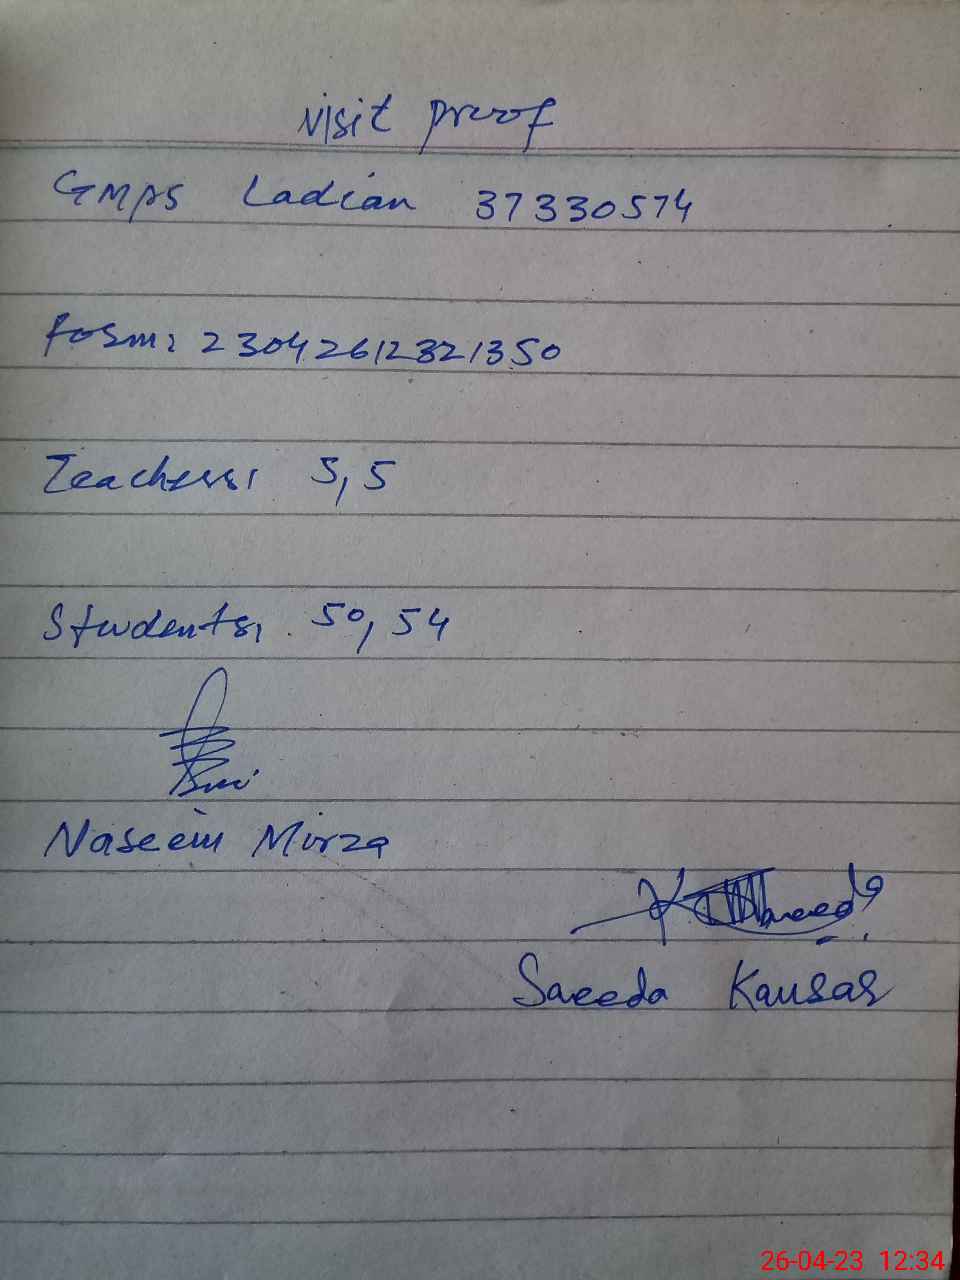 Visit proof
GMPS Ladian 37330574
form: 23042612321350
Teachers: 5, 5
Students: 50, 54
Naseem Mirza
Saeeda Kausar
26-04-23 12:34